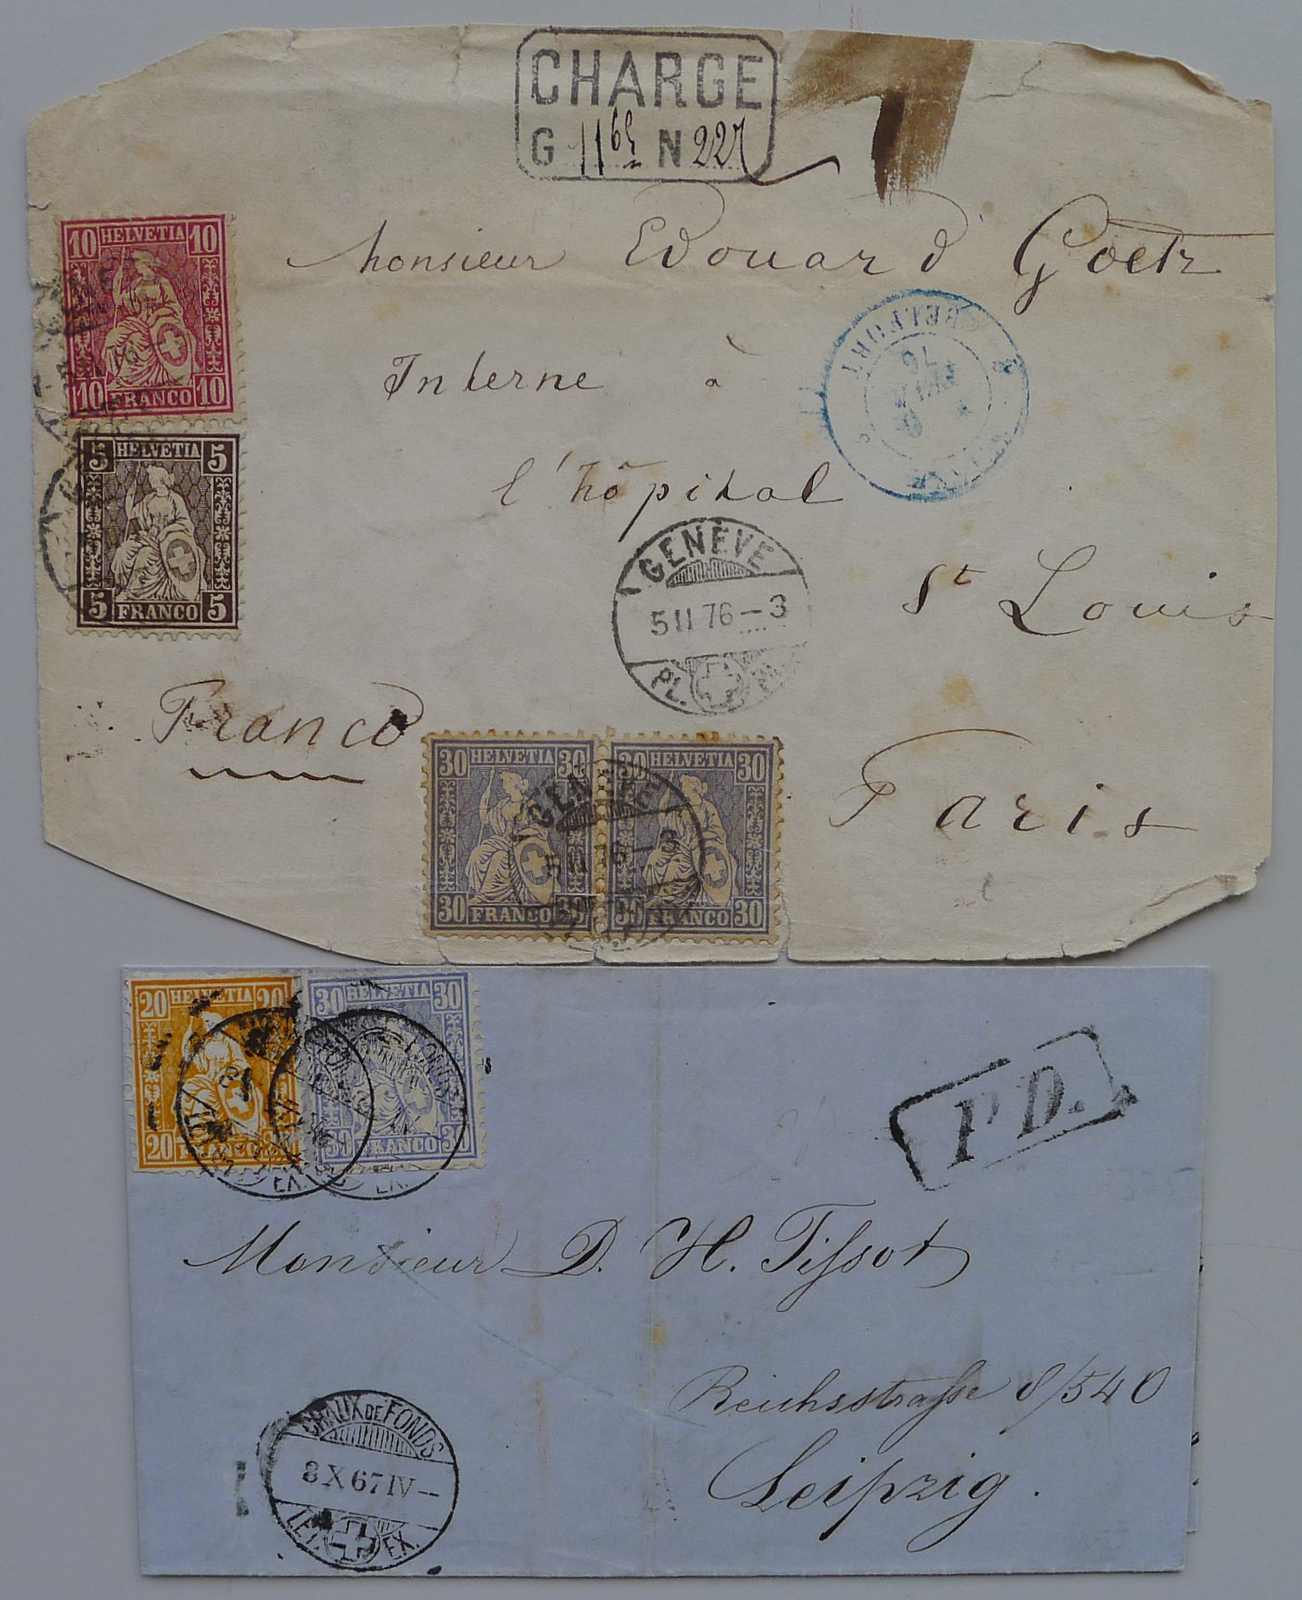 CHARGE
G 1165 N 227
10 HELVETIA 10
10 FRANCO 10
Monsieur Edouard Goetz
BELFORT
76
Interne à
5 HELVETIA 5
5 FRANCO 5
l'hôpital
GENÈVE
5 II 76 – 3
PL.
St Louis
Franco
Paris
30 HELVETIA 30 30 HELVETIA 30
GENÈVE
5 II 76 – 3
30 FRANCO 30 30 FRANCO 30
20 HELVETIA 20 30 HELVETIA 30
20 FRANCO 20 30 FRANCO 30
P.D.
Monsieur D. H. Tissot
Reichsstrasse 8/540
Leipzig.
CHAUX DE FONDS
8 X 67 IV –
LET. EX.